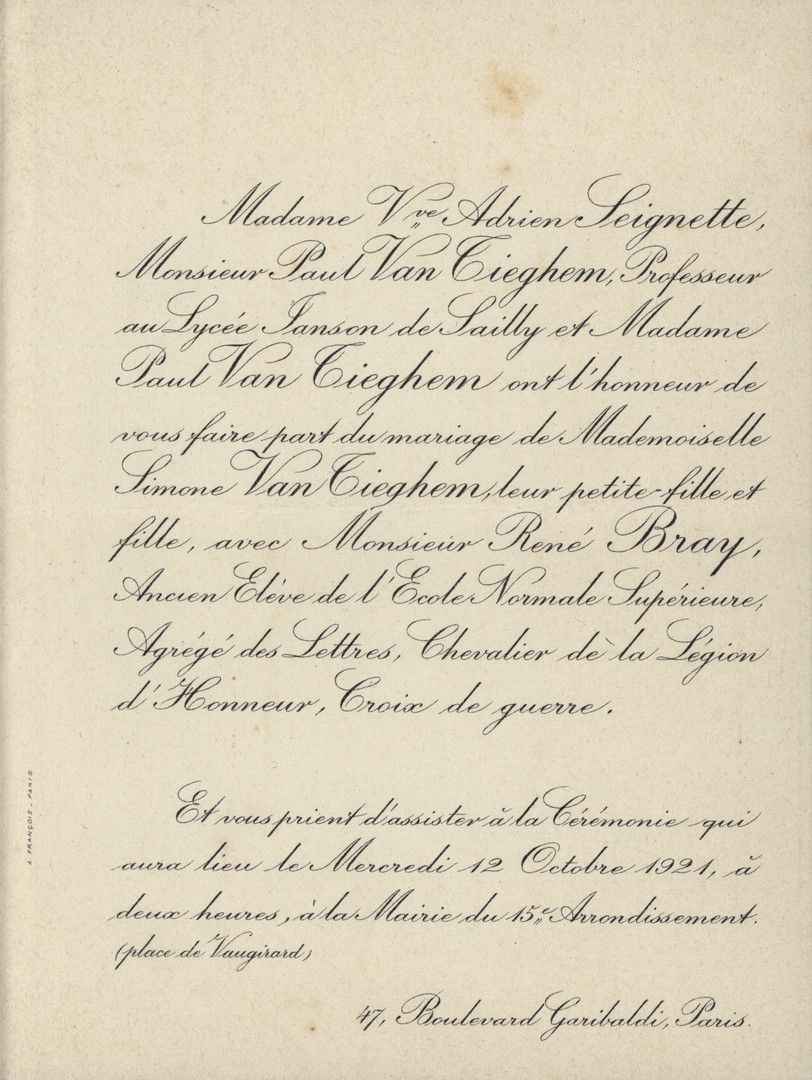 Madame Vve Adrien Seignette,
Monsieur Paul Van Tieghem, Professeur
au Lycée Janson de Sailly et Madame
Paul Van Tieghem ont l'honneur de
vous faire part du mariage de Mademoiselle
Simone Van Tieghem, leur petite-fille et
fille, avec Monsieur René Bray,
Ancien Elève de l'Ecole Normale Supérieure,
Agrégé des Lettres, Chevalier de la Légion
d'Honneur, Croix de guerre.
Et vous prient d'assister à la Cérémonie qui
aura lieu le Mercredi 12 Octobre 1921, à
deux heures, à la Mairie du 15e Arrondissement.
(place de Vaugirard)
47, Boulevard Garibaldi, Paris.
J. FRANÇOIS _ PARIS